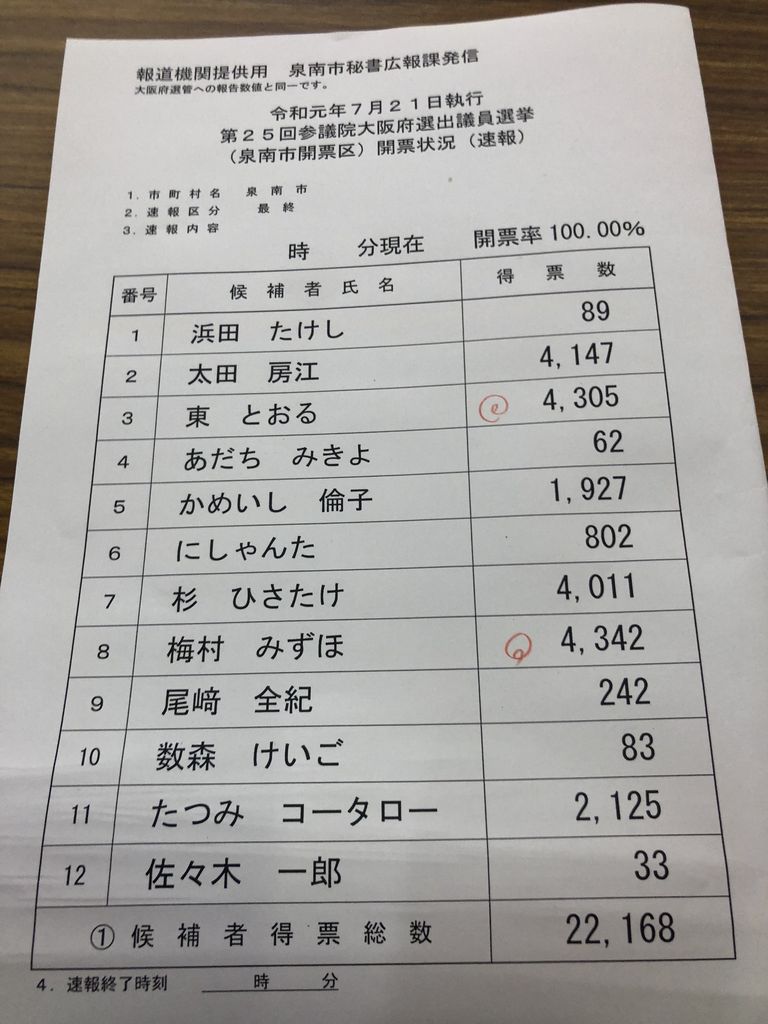 報道機関提供用 泉南市秘書広報課発信
大阪府選管への報告数値と同一です。
令和元年7月21日執行
第25回参議院大阪府選出議員選挙
(泉南市開票区)開票状況(速報)
1.市町村名 泉南市
2.速報区分 最終
3.速報内容
時 分現在 開票率 100.00%
番号 候補者氏名 得票数
1 浜田 たけし 89
2 太田 房江 4,147
3 東 とおる 4,305
4 あだち みきよ 62
5 かめいし 倫子 1,927
6 にしゃんた 802
7 杉 ひさたけ 4,011
8 梅村 みずほ 4,342
9 尾﨑 全紀 242
10 数森 けいご 83
11 たつみ コータロー 2,125
12 佐々木 一郎 33
①候補者得票総数 22,168
4.速報終了時刻 時 分